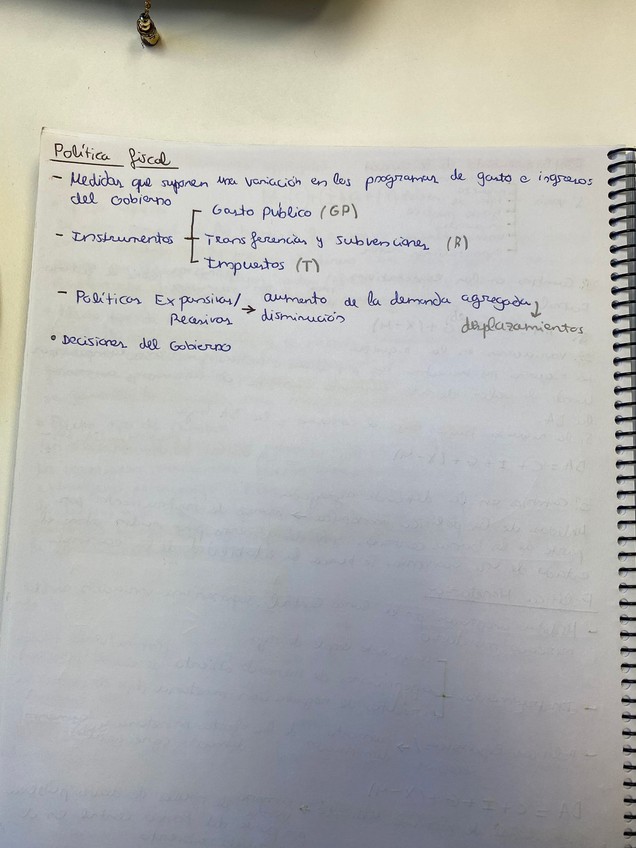 Política fiscal
- Medidas que suponen una variación en los programas de gasto e ingresos
del Gobierno
Gasto Público (GP)
- Instrumentos Transferencias y subvenciones (R)
Impuestos (T)
- Políticas Expansivas/ → aumento de la demanda agregada
Recesivas disminución desplazamientos
• Decisiones del Gobierno